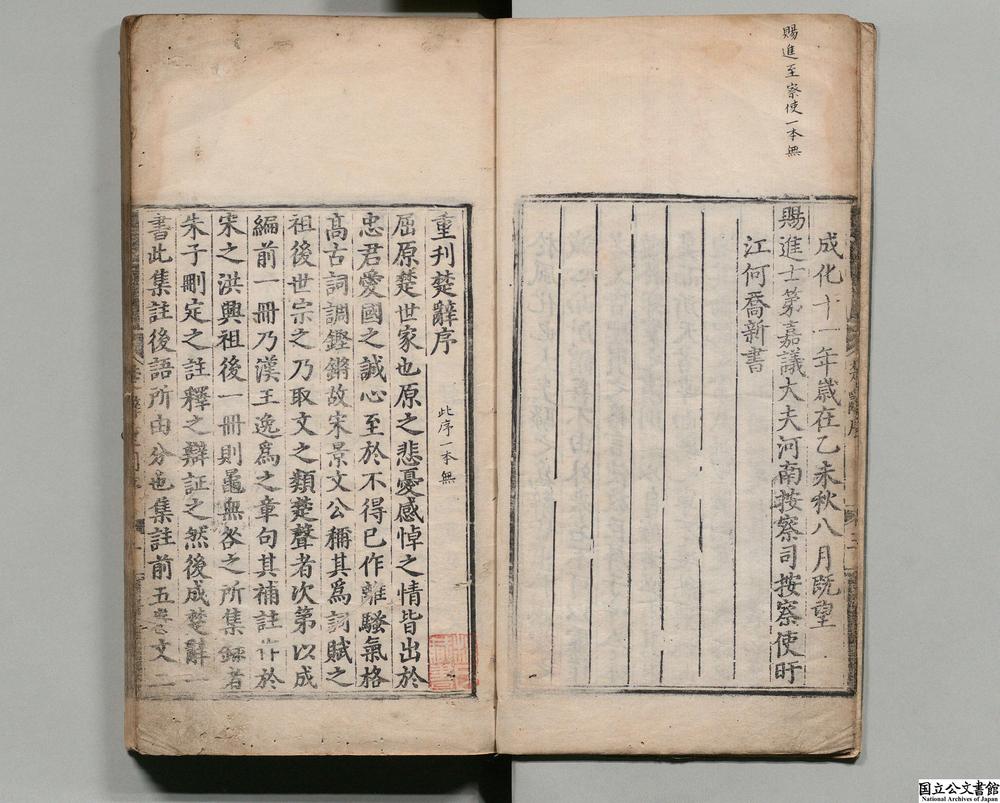 賜進至察使一本無
成化十一年歲在乙未秋八月既望
賜進士第嘉議大夫河南按察司按察使旴
江何喬新書
重刊楚辭序
此序一本無
屈原楚世家也原之悲憂感悼之情皆出於
忠君愛國之誠心至於不得已作離騷氣格
高古詞調鏗鏘故宋景文公稱其爲詞賦之
祖後世宗之乃取文之類楚聲者次第以成
編前一冊乃漢王逸爲之章句其補註作於
宋之洪興祖後一冊則鼂無咎之所集録者
朱子刪定之註釋之辯証之然後成楚辭一
書此集註後語所由分也集註前五卷文二
国立公文書館
National Archives of Japan